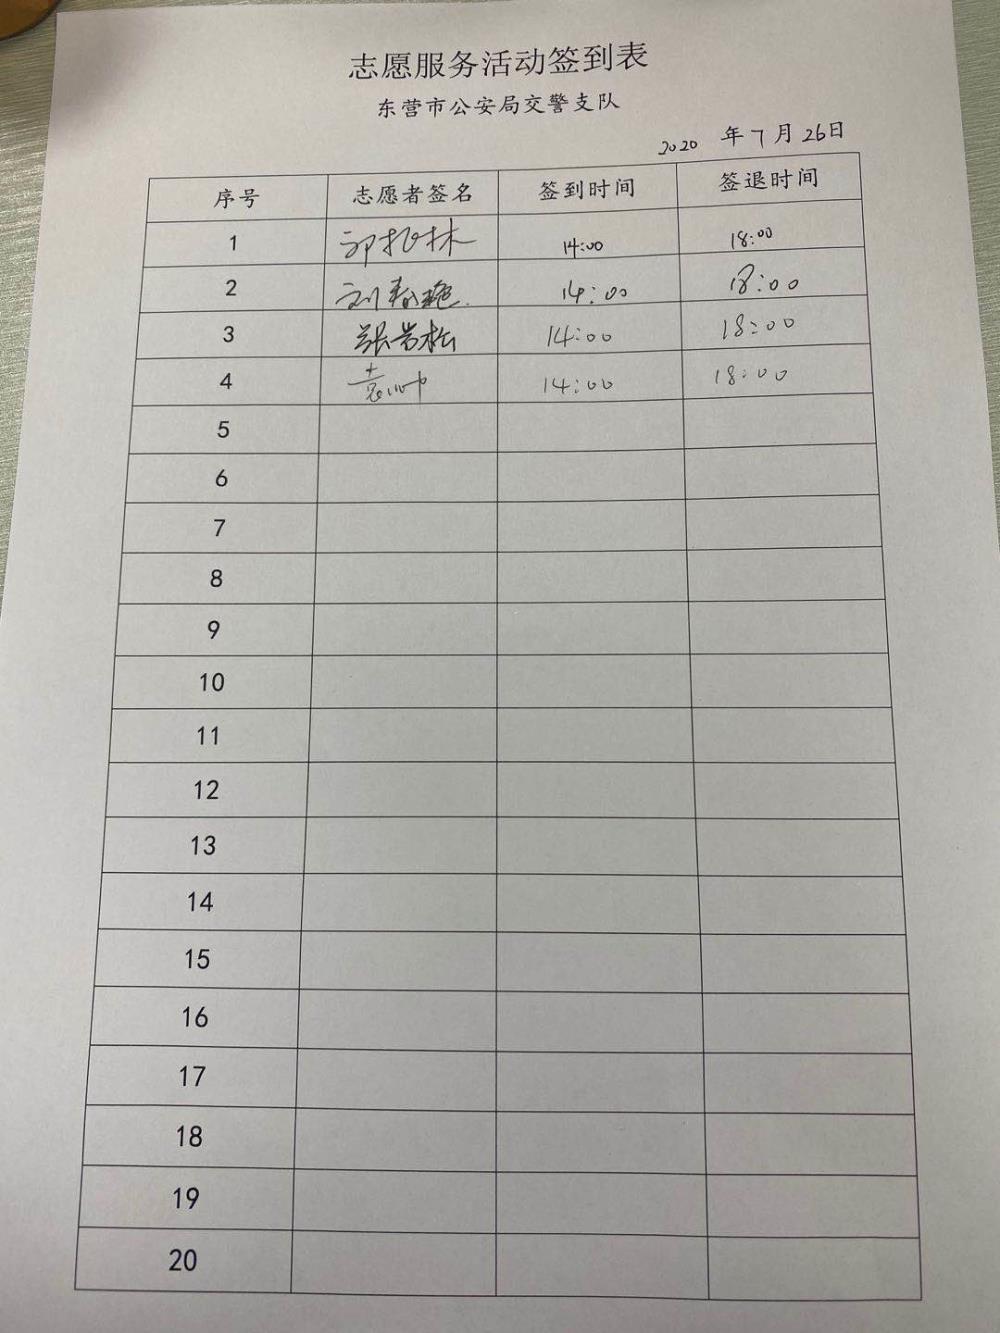 志愿服务活动签到表
东营市公安局交警支队
2020 年7月26日
序号 志愿者签名 签到时间 签退时间
1 14:00 18:00
2 刘春艳 14:00 18:00
3 张岩松 14:00 18:00
4 14:00 18:00
5
6
7
8
9
10
11
12
13
14
15
16
17
18
19
20